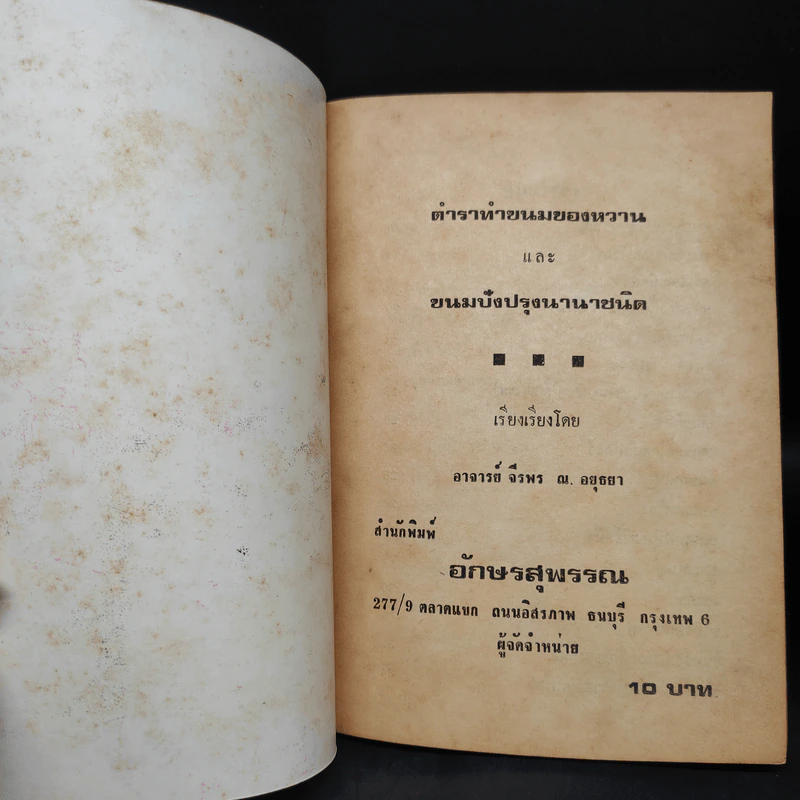 ตำราทำขนมของหวาน
และ
ขนมปังปรุงนานาชนิด
เรียงเรียงโดย
อาจารย์ จีรพร ณ. อยุธยา
สำนักพิมพ์
อักษรสุพรรณ
277/9 ตลาดแขก ถนนอิสรภาพ ธนบุรี กรุงเทพ 6
ผู้จัดจำหน่าย
10 บาท